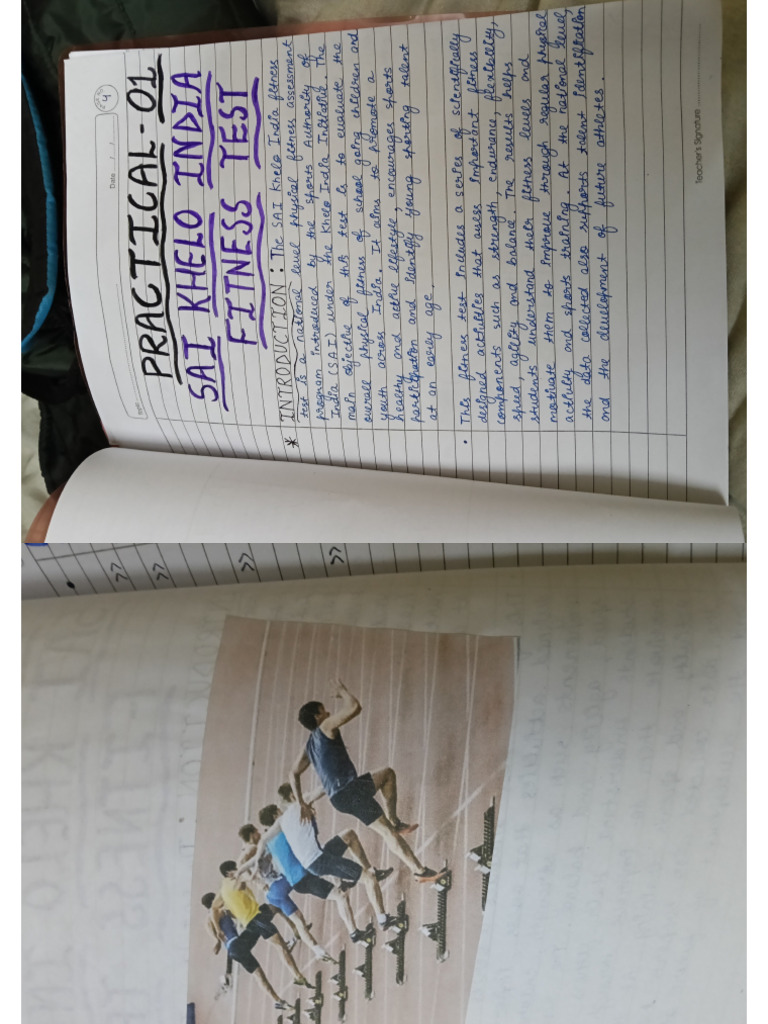 Date / /
4
PRACTICAL-01
SAI KHELO INDIA
FITNESS TEST
* INTRODUCTION: The SAI Khelo India fitness
test is a national level physical fitness assessment
program introduced by the Sports Authority of
India (SAI) under the Khelo India Initiative. The
main objective of this test is to evaluate the
overall physical fitness of school going children and
youth across India. It aims to promote a
healthy and active lifestyle, encourages sports
participation and identify young sporting talent
at an early age.
• This fitness test includes a series of scientifically
designed activities that assess important fitness
components such as strength, endurance, flexibility,
speed, agility and balance. The results helps
students understand their fitness levels and
motivate them to improve through regular physical
activity and sports training. At the national level,
the data collected also supports talent identification
and the development of future athletes.
Teacher's Signature